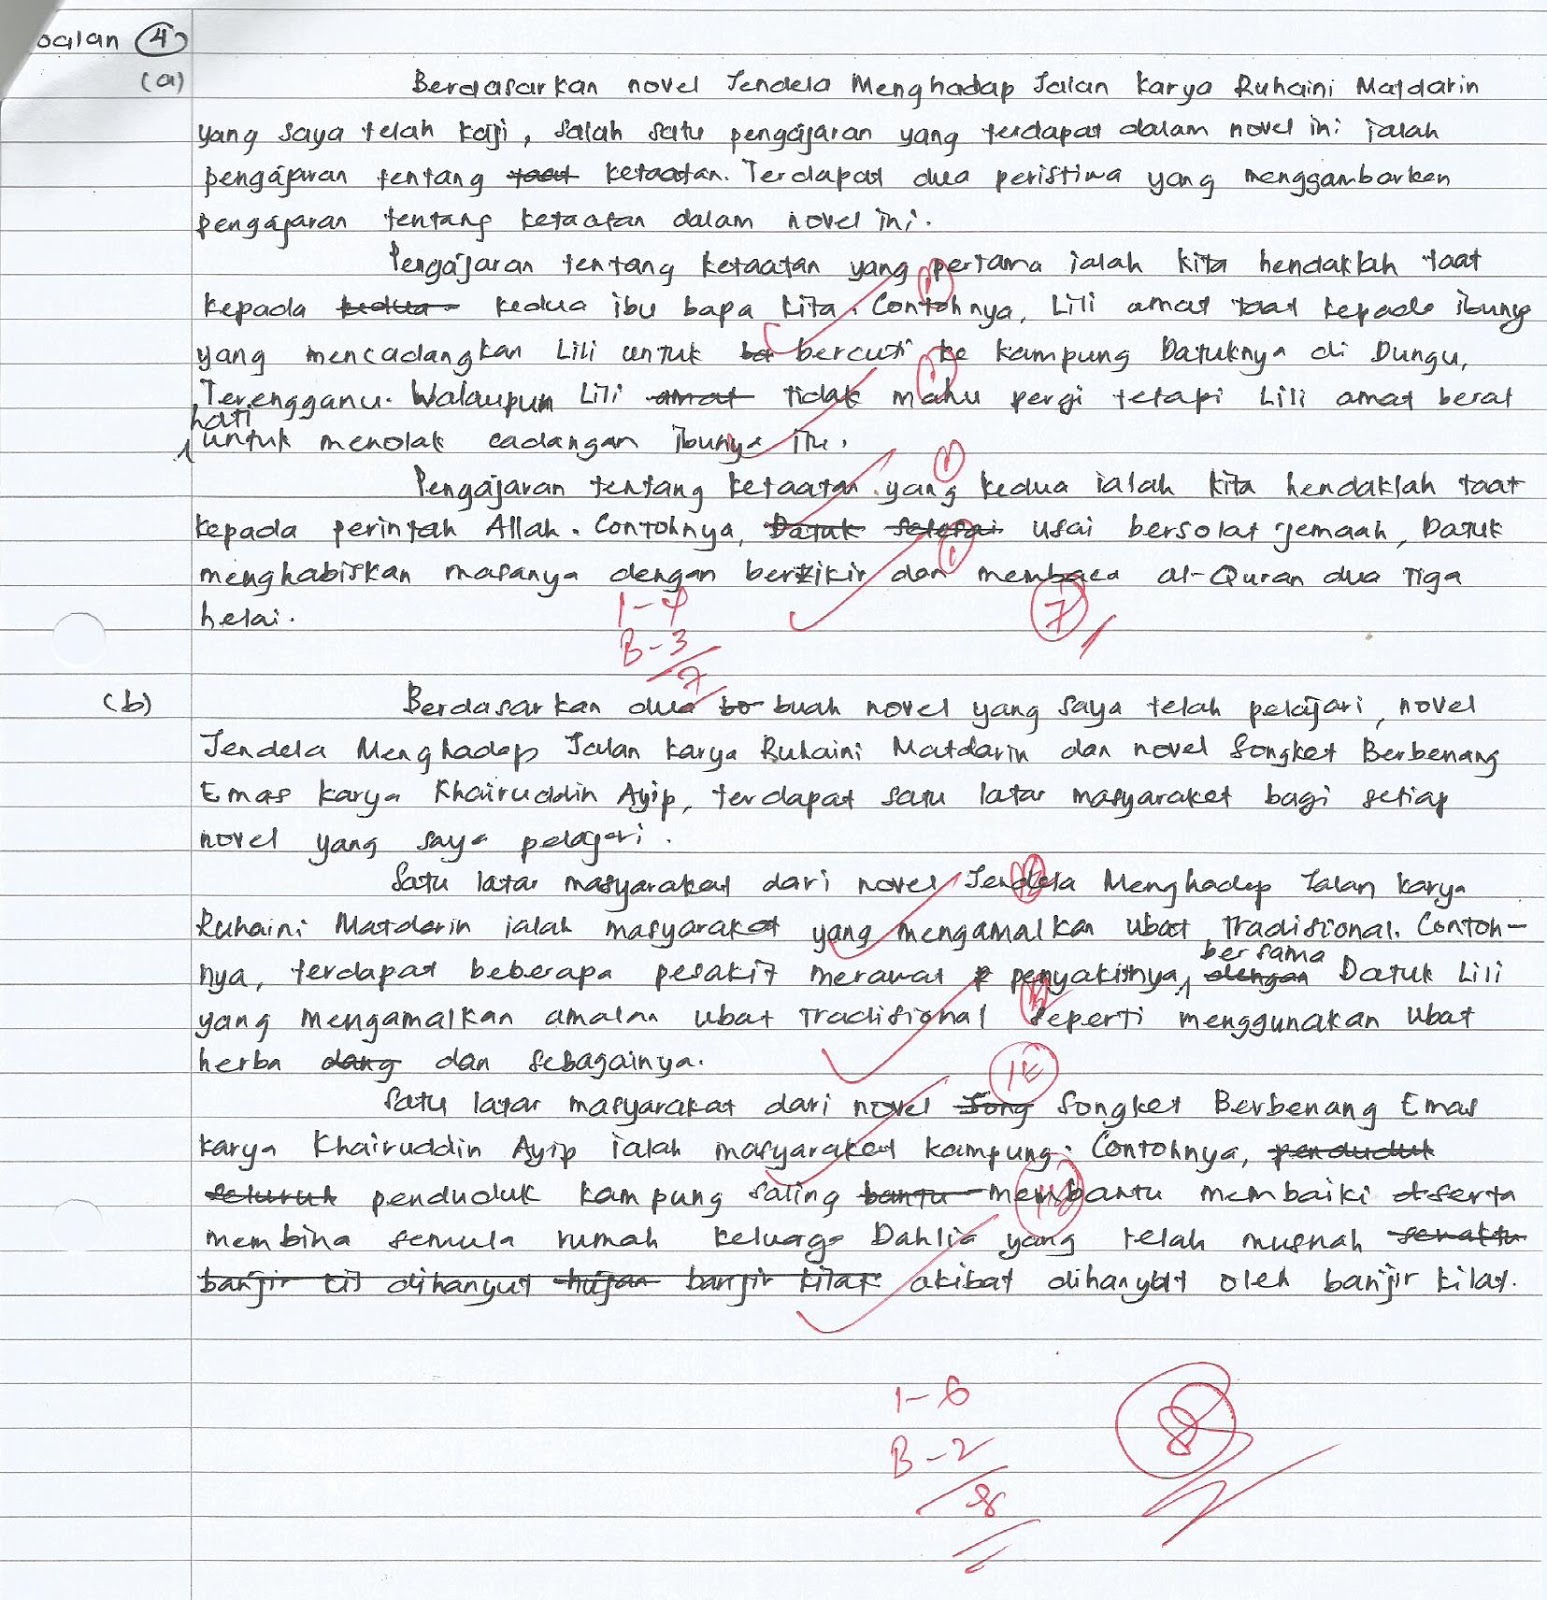 oalan 4
(a) Berdasarkan novel Jendela Menghadap Jalan karya Ruhaini Matdarin
yang saya telah kaji, salah satu pengajaran yang terdapat dalam novel ini ialah
pengajaran tentang taat ketaatan. Terdapat dua peristiwa yang menggambarkan
pengajaran tentang ketaatan dalam novel ini.
Pengajaran tentang ketaatan yang pertama ialah kita hendaklah taat
kepada kedua kedua ibu bapa kita. Contohnya, Lili amat taat kepada ibunya
yang mencadangkan Lili untuk bercuti ke kampung Datuknya di Dungu,
Terengganu. Walaupun Lili amat tidak mahu pergi tetapi Lili amat berat
hati
untuk menolak cadangan ibunya itu.
Pengajaran tentang ketaatan yang kedua ialah kita hendaklah taat
kepada perintah Allah. Contohnya, Datuk selesai usai bersolat jemaah, Datuk
menghabiskan masanya dengan berzikir dan membaca al-Quran dua tiga
helai.
1-4
B-3
7
7
(b) Berdasarkan dua bo buah novel yang saya telah pelajari, novel
Jendela Menghadap Jalan karya Ruhaini Matdarin dan novel Songket Berbenang
Emas karya Khairuddin Ayip, terdapat satu latar masyarakat bagi setiap
novel yang saya pelajari.
Satu latar masyarakat dari novel Jendela Menghadap Jalan karya
Ruhaini Matdarin ialah masyarakat yang mengamalkan ubat tradisional. Contoh-
nya, terdapat beberapa pesakit merawat p penyakitnya dengan Datuk Lili
bersama
yang mengamalkan amalan ubat tradisional seperti menggunakan ubat
herba dang dan sebagainya.
Satu latar masyarakat dari novel Song Songket Berbenang Emas
karya Khairuddin Ayip ialah masyarakat kampung. Contohnya, penduduk
seluruh penduduk kampung saling bantu membantu membaiki serta
membina semula rumah keluarga Dahlia yang telah musnah sewaktu
banjir kil dihanyut hujan banjir kilat akibat dihanyut oleh banjir kilat.
1-6
B-2
8
8